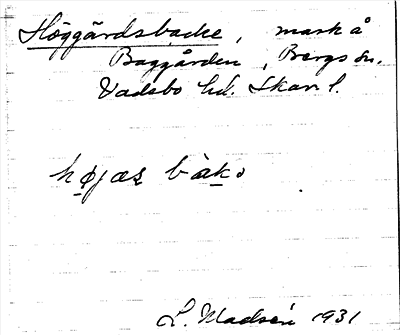 Höggårdsbacke, mark å
Baggården, Bergs sn.
Vadsbo hd. Skar. l.
L. Madsén 1931